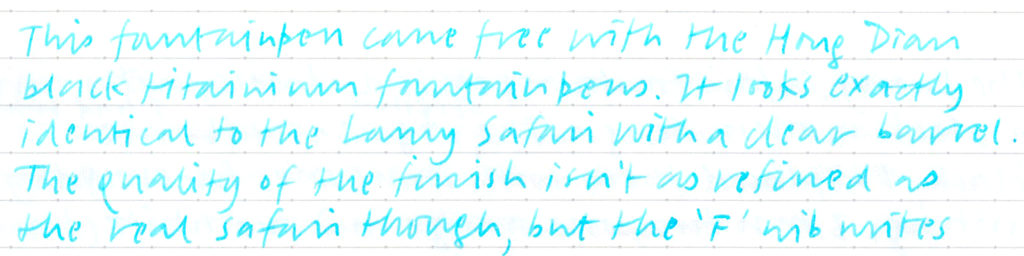 This fountainpen came free with the Hong Dian
black titainium fountainpens. It looks exactly
identical to the Lamy Safari with a clear barrel.
The quality of the finish isn't as refined as
the real Safari though, but the 'F' nib writes